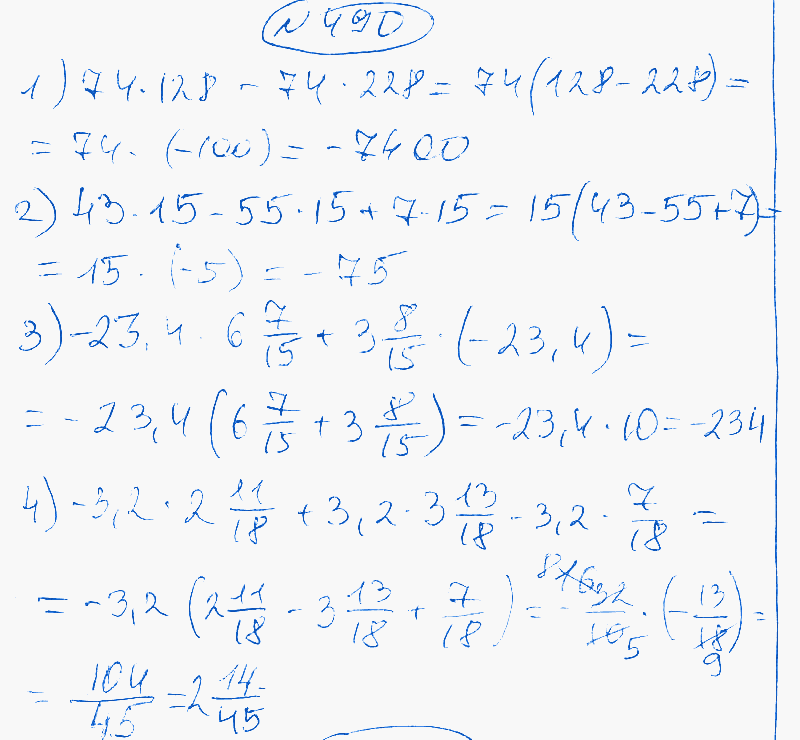 N 490
1) 74·128 - 74·228 = 74(128-228) =
= 74·(-100) = -7400
2) 43·15 - 55·15 + 7·15 = 15(43-55+7) =
= 15·(-5) = -75
3) -23,4·6 7/15 + 3 8/15·(-23,4) =
= -23,4(6 7/15 + 3 8/15) = -23,4·10 = -234
4) -3,2·2 11/18 + 3,2·3 13/18 - 3,2·7/18 =
= -3,2(2 11/18 - 3 13/18 + 7/18) = -32/10·(-13/18) =
= 104/45 = 2 14/45